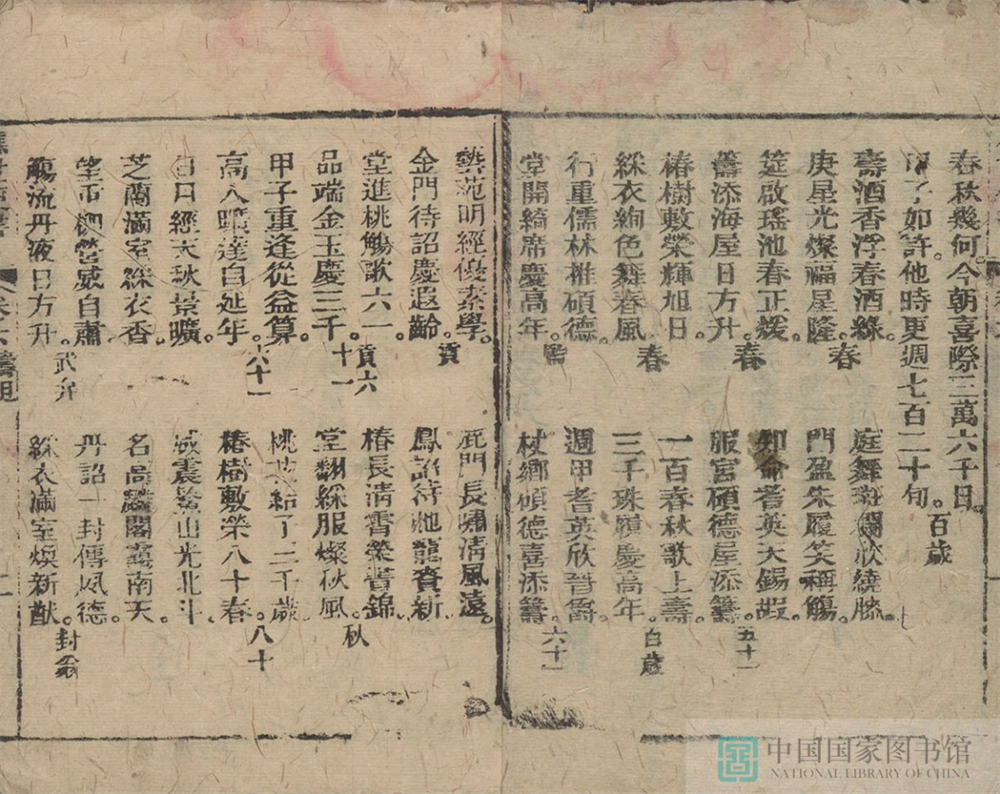 春秋幾何。今朝喜際三萬六千日。
甲子如許。他時更週七百二十旬。百歲
壽酒香浮春酒綠。
庭舞斑斕欣繞膝。七
庚星光燦福星隆。春
門盈朱履笑稱觴。
筵啟瑤池春正煖。
知命耆英天錫嘏。五十一
籌添海屋日方升。春
服官碩德屋添籌。
椿樹敷榮輝旭日。
一百春秋歌上壽。
綵衣絢色舞春風。春
三千珠履慶高年。百歲
行重儒林推碩德。
週甲耆英欣晉爵。
堂開綺席慶高年。監
杖鄉碩德喜添籌。六十一
藝苑明經優素學。
鹿門長嘯清風遠。
金門待詔慶遐齡。貢
鳳詔待弛寵賚新。
堂進桃觴歌六一。貢六十一
椿長清霄榮晝錦。
品端金玉慶三千。
堂翻綵服燦秋風。秋
甲子重逢從益算。
桃 結了三千歲。
高人曠達自延年。六十一
椿樹敷榮八十春。八十
白日經天秋景曠。
城 山光北斗。
芝蘭滿室綵衣香。
名高麟閣壽南天。
望 柳營威自肅。
丹詔一封傳鳳德。
觴流丹液日方升。武弁
綵衣滿室煥新猷。封翁
卷六
二
中国国家图书馆
NATIONAL LIBRARY OF CHINA